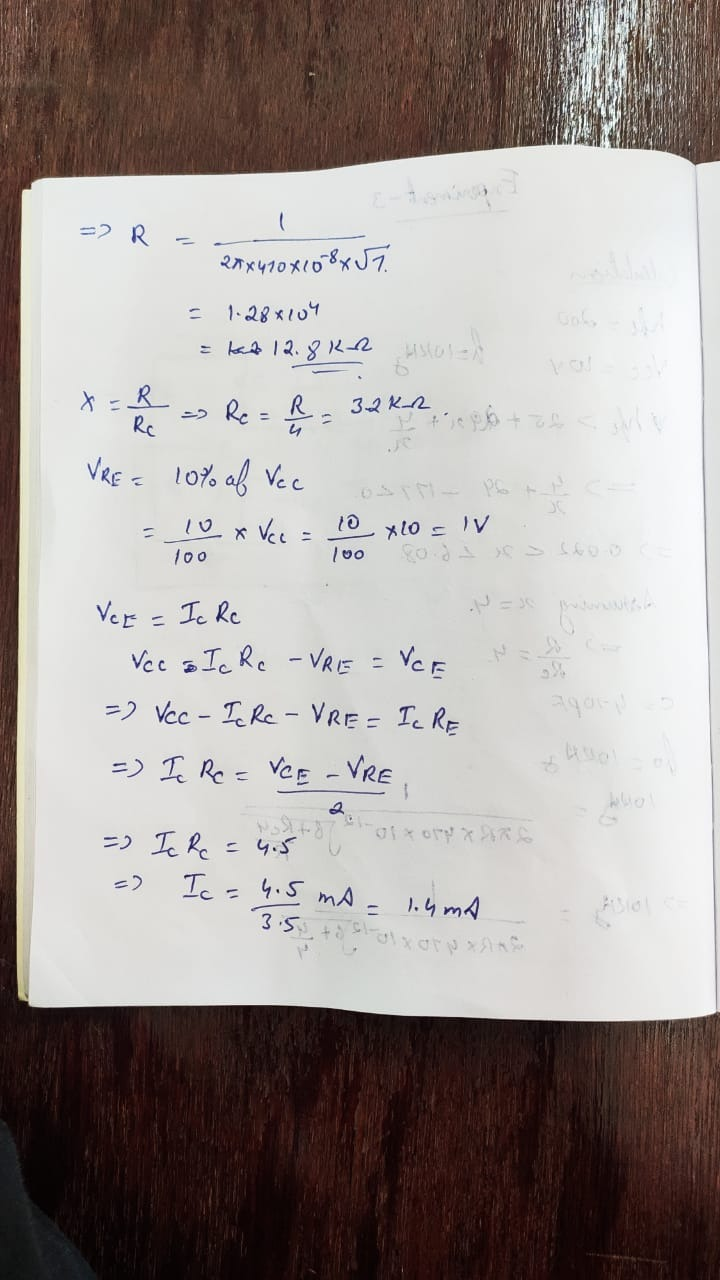 => R = 1 / 2π×470×10⁻⁸×√7.
= 1.28×10⁴
= 12.8 KΩ
X = R/Rc => Rc = R/4 = 3.2 KΩ.
VRE = 10% of Vcc
= 10/100 × Vcc = 10/100 ×10 = 1V
VCE = Ic Rc
Vcc - Ic Rc - VRE = VCE
=> Vcc - Ic Rc - VRE = Ic RE
=> Ic Rc = VCE - VRE / 2
=> Ic Rc = 4.5
=> Ic = 4.5/3.5 mA = 1.4 mA